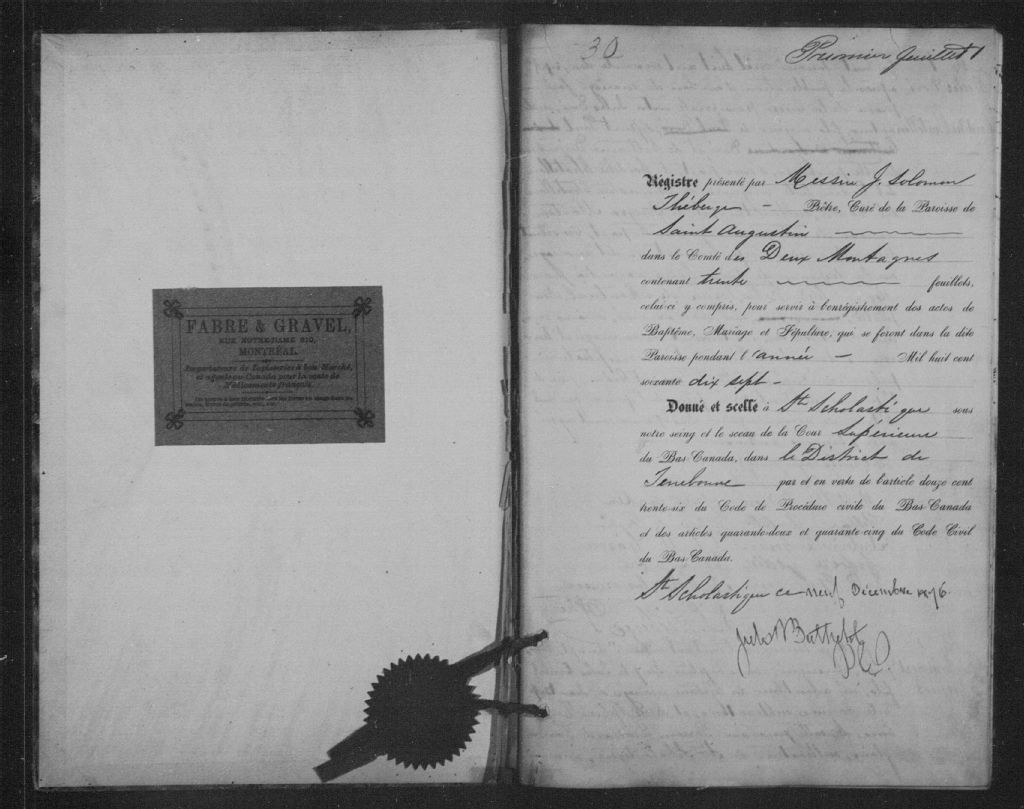 FABRE & GRAVEL,
RUE NOTRE-DAME 219,
MONTRÉAL.
Importateurs de Tapisseries à bon Marché,
et agents au Canada pour la vente de
Médicaments français.
30
Premier feuillet
Régistre présenté par Messire J. Solomon
Théberge - Prêtre, Curé de la Paroisse de
Saint Augustin
dans le Comté des Deux Montagnes
contenant trente feuillets,
celui-ci y compris, pour servir à l'enrégistrement des actes de
Baptême, Mariage et Sépulture, qui se feront dans la dite
Paroisse pendant l'année - Mil huit cent
soixante dix sept -
Donné et scellé à St Scholastique sous
notre seing et le sceau de la Cour Supérieure
du Bas-Canada, dans le District de
Terrebonne par et en vertu de l'article douze cent
trente-six du Code de Procédure civile du Bas-Canada
et des articles quarante-deux et quarante-cinq du Code Civil
du Bas-Canada.
St Scholastique ce neuf Décembre 1876.